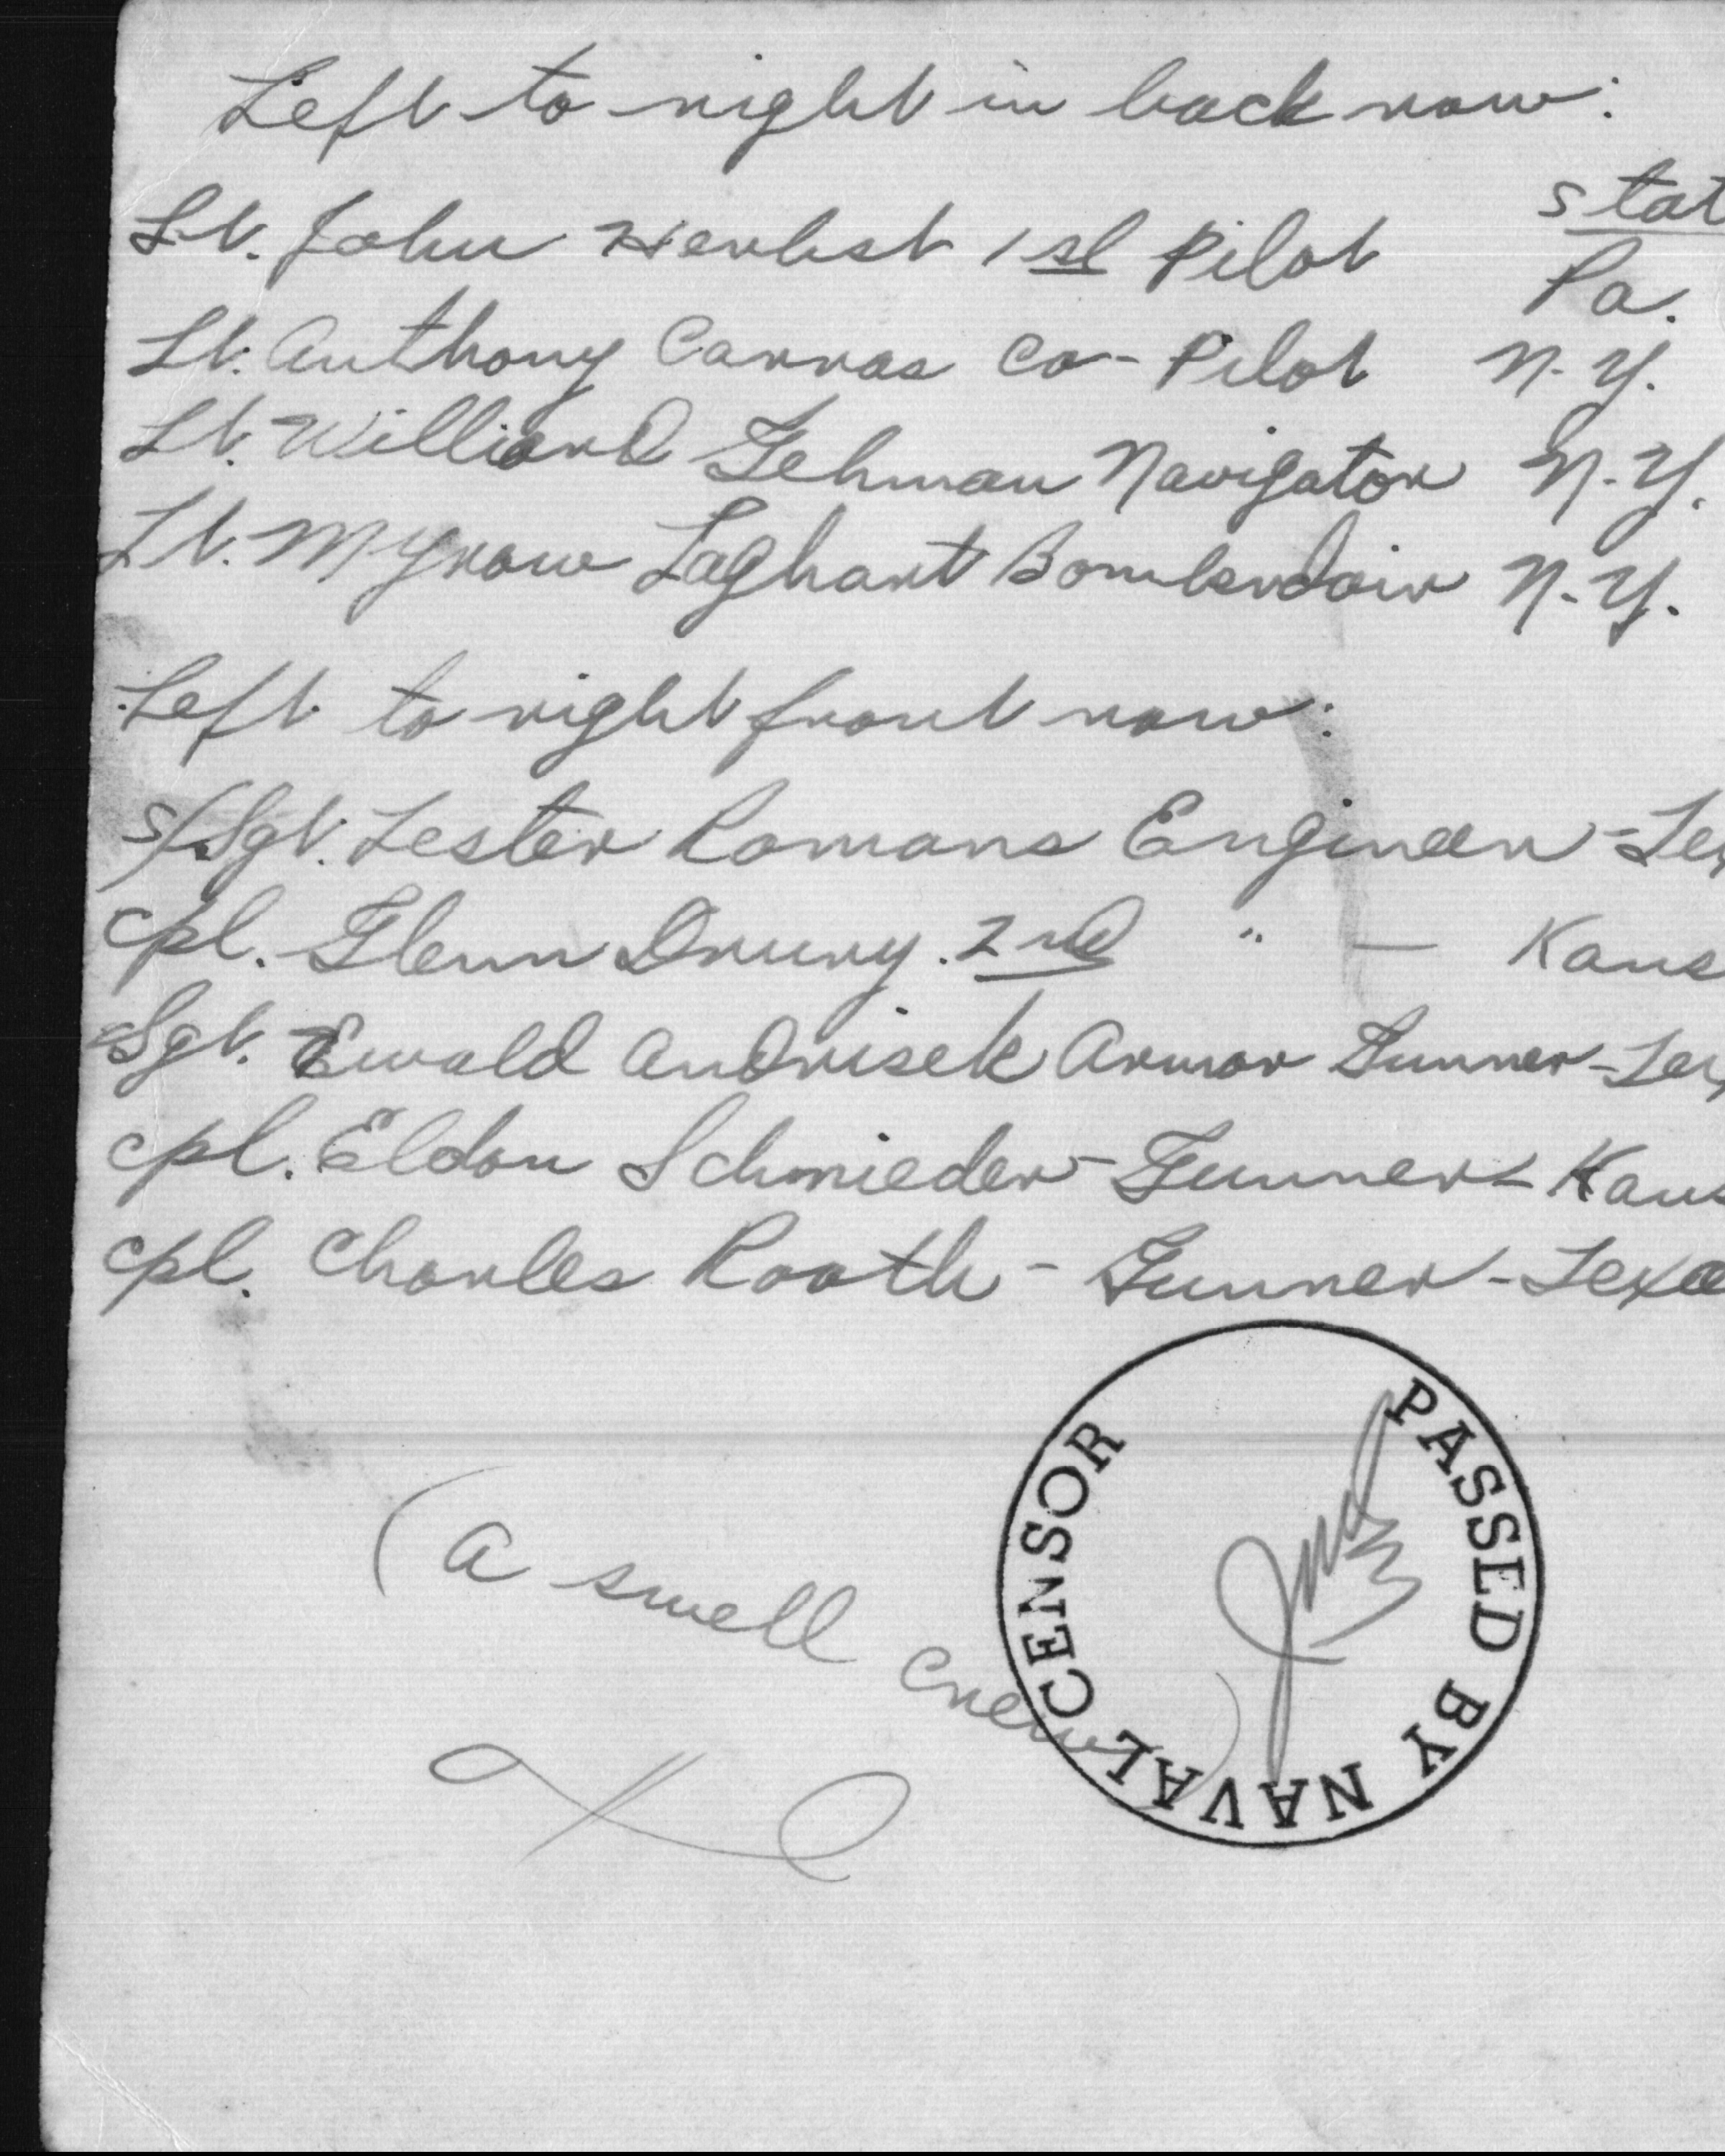 Left to right in back row:
stat
Lt. John Herbst 1st Pilot Pa.
Lt. Anthony Carras Co-Pilot N.Y.
Lt. Williard Gehman Navigator N.Y.
Lt. Myrow Laghart Bomberdair N.Y.
Left to right front row:
S/Sgt. Lester Romans Engineer - Tex
Cpl. Glenn Drury. 2nd " — Kans
Sgt. Ewald Andrisek Armor Gunner - Tex
Cpl. Eldon Schmieder - Gunner - Kans
Cpl. Charles Rooth - Gunner - Texa
(a swell crew)
PASSED BY NAVAL CENSOR